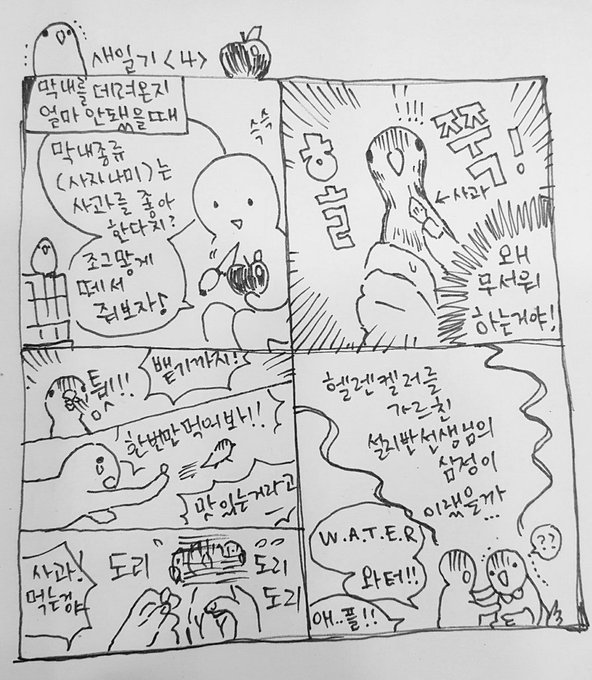 새일기 <4>
막내를 데려온지
얼마 안됐을때
막내종류
(사자나미)는
사과를 좋아
한다지?
조그맣게
떼서
줘보자♪
슥슥
!!!
허흡
쭈욱!
←사과
왜
무서워
하는거야!
퉵!!!
뱉기까지!
한번만 먹어보아!!
맛있는거라고
사과.
먹는걍
도리
도리
도리
헬렌켈러를
가르친
설리반선생님의
심정이
이랬을까...
W.A.T.E.R
와터!!
애..플!!
??